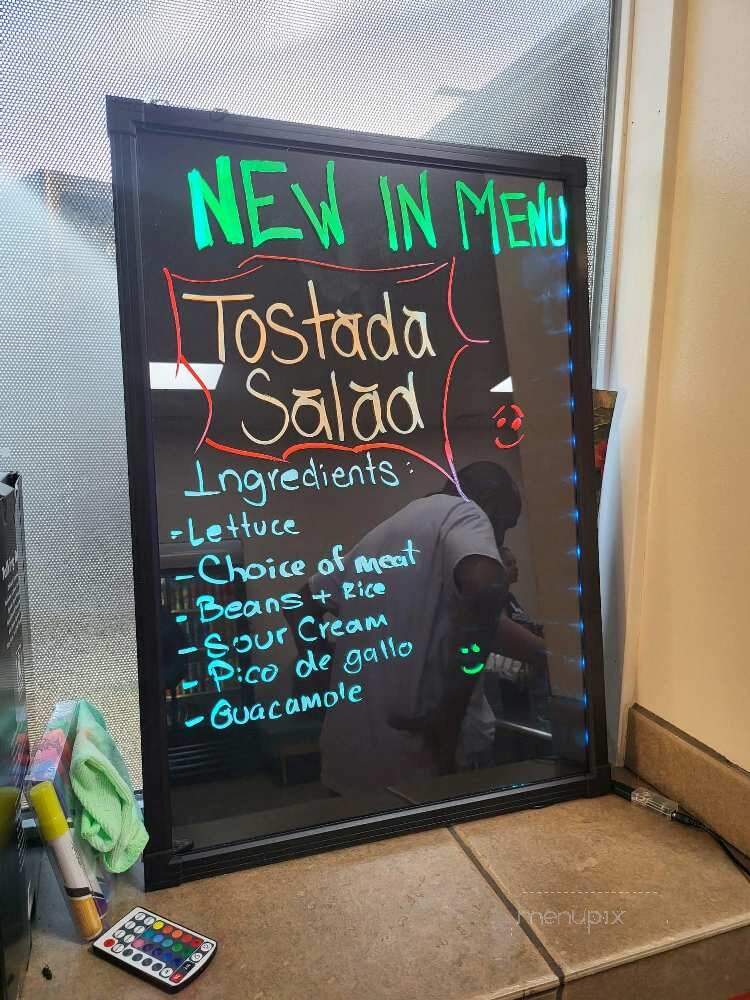 NEW IN MENU
Tostada
Salad
Ingredients:
- Lettuce
- Choice of meat
- Beans + Rice
- Sour Cream
- Pico de gallo
- Guacamole
menupix